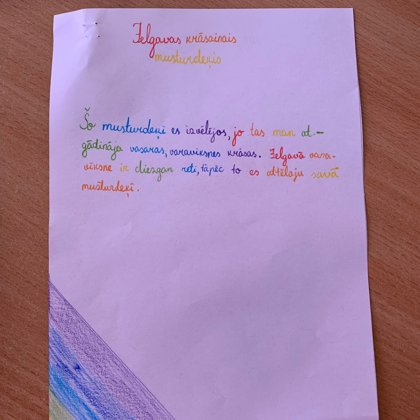 Jelgavas krāsainais
musturdeķis
Šo musturdeķi es izvēlējos, jo tas man at-
gādināja vasaras, varavīksnes krāsas. Jelgavā vara-
vīksne ir diezgan reti, tāpēc to es attēloju savā
musturdeķī.